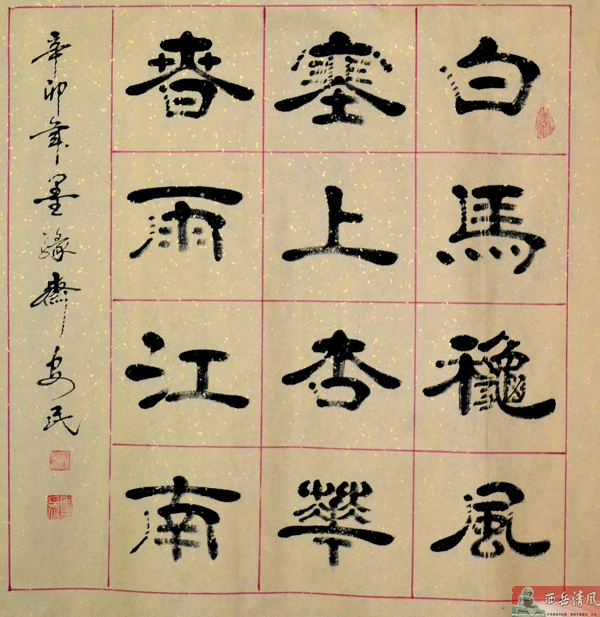 白馬穐風
塞上杏華
春雨江南
辛卯年墨緣齋安民
西岳清風